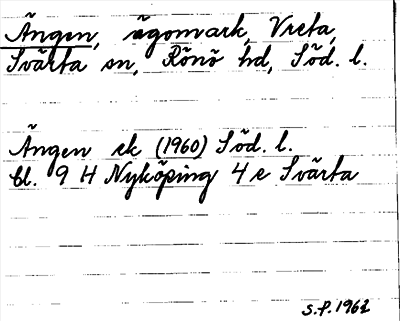 Ängen, ägomark, Vreta,
Svärta sn, Rönö hd, Söd. l.
Ängen ek (1960) Söd. l.
bl. 9 H Nyköping 4 e Svärta
S.P. 1961